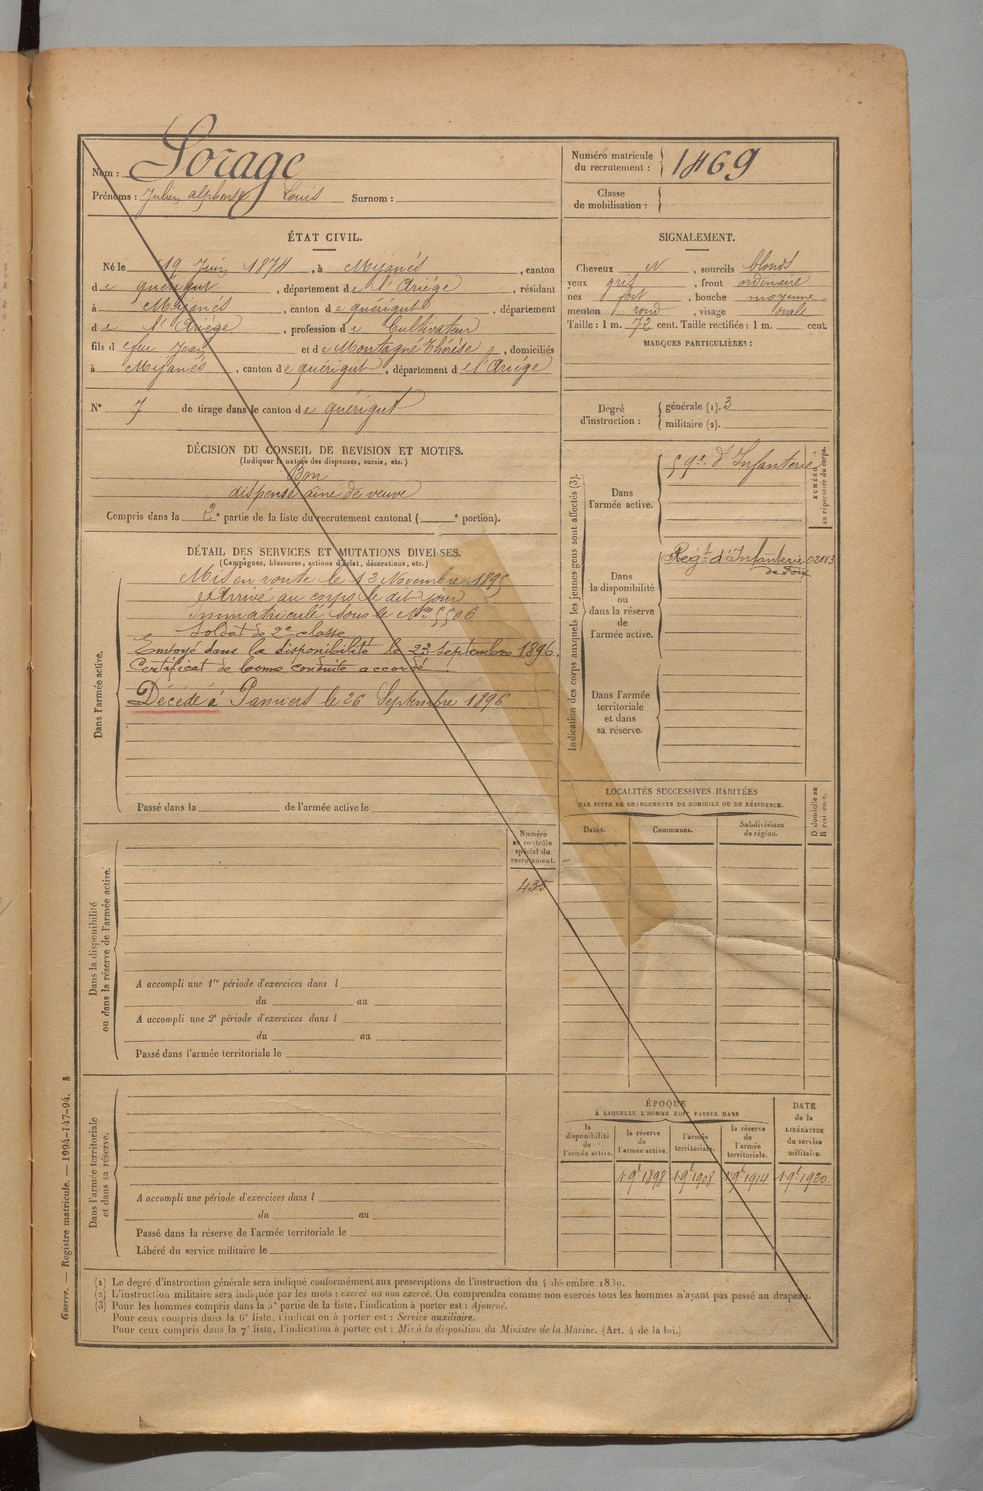 Nom : Sorage
Prénoms : Julien alphonse Louis Surnom :
Numéro matricule du recrutement : 1469
Classe de mobilisation :
ÉTAT CIVIL.
Né le 19 Juin 1874, à Mijanés, canton
de quérigut, département de l'Ariége, résidant
à Mijanés, canton de quérigut, département
de l'Ariége, profession de Cultivateur
fils de feu Jean et de Montagné Thérèse, domiciliés
à Mijanés, canton de quérigut, département de l'Ariége
N° 7 de tirage dans le canton de quérigut
SIGNALEMENT.
Cheveux et, sourcils blonds
yeux gris, front ordinaire
nez fort, bouche moyenne
menton rond, visage ovale
Taille : 1 m. 72 cent. Taille rectifiée : 1 m. cent.
MARQUES PARTICULIÈRES :
Degré d'instruction : générale (1). 3
militaire (2).
DÉCISION DU CONSEIL DE REVISION ET MOTIFS.
(Indiquer la nature des dispenses, sursis, etc.)
Bon
dispensé aîné de veuve
Compris dans la 2e partie de la liste du recrutement cantonal ( e portion).
DÉTAIL DES SERVICES ET MUTATIONS DIVERSES.
(Campagnes, blessures, actions d'éclat, décorations, etc.)
Dans l'armée active.
Mis en route le 13 Novembre 1895
Arrivé au corps le dit jour
Immatriculé sous le No 5506
Soldat de 2e classe
Envoyé dans la disponibilité le 23 septembre 1896.
Certificat de bonne conduite accordé
Décédé à Pamiers le 26 Septembre 1896
Passé dans la de l'armée active le
Indication des corps auxquels les jeunes gens sont affectés (3).
NUMÉRO au répertoire du corps.
Dans l'armée active.
59e d'Infanterie
Dans la disponibilité ou dans la réserve de l'armée active.
Régt d'Infanterie 02183
de Foix
Dans l'armée territoriale et dans sa réserve.
LOCALITÉS SUCCESSIVES HABITÉES
PAR SUITE DE CHANGEMENTS DE DOMICILE OU DE RÉSIDENCE.
Dates. Communes. Subdivisions de région.
D domicile ou R résidence.
Numéro au contrôle spécial du recrutement.
435
Dans la disponibilité ou dans la réserve de l'armée active.
A accompli une 1re période d'exercices dans l
du au
A accompli une 2e période d'exercices dans l
du au
Passé dans l'armée territoriale le
Dans l'armée territoriale et dans sa réserve.
A accompli une période d'exercices dans l
du au
Passé dans la réserve de l'armée territoriale le
Libéré du service militaire le
ÉPOQUE
À LAQUELLE L'HOMME DOIT PASSER DANS
la disponibilité de l'armée active.
la réserve de l'armée active.
l'armée territoriale.
la réserve de l'armée territoriale.
DATE de la LIBÉRATION du service militaire.
1 9e 1898 1 9e 1908 1 9e 1914 1 9e 1920
(1) Le degré d'instruction générale sera indiqué conformément aux prescriptions de l'instruction du 4 décembre 1889.
(2) L'instruction militaire sera indiquée par les mots : exercé ou non exercé. On comprendra comme non exercés tous les hommes n'ayant pas passé au drapeau.
(3) Pour les hommes compris dans la 5e partie de la liste, l'indication à porter est : Ajourné.
Pour ceux compris dans la 6e liste, l'indication à porter est : Service auxiliaire.
Pour ceux compris dans la 7e liste, l'indication à porter est : Mis à la disposition du Ministre de la Marine. (Art. 4 de la loi.)
Guerre. — Registre matricule. — 1994-147-94.